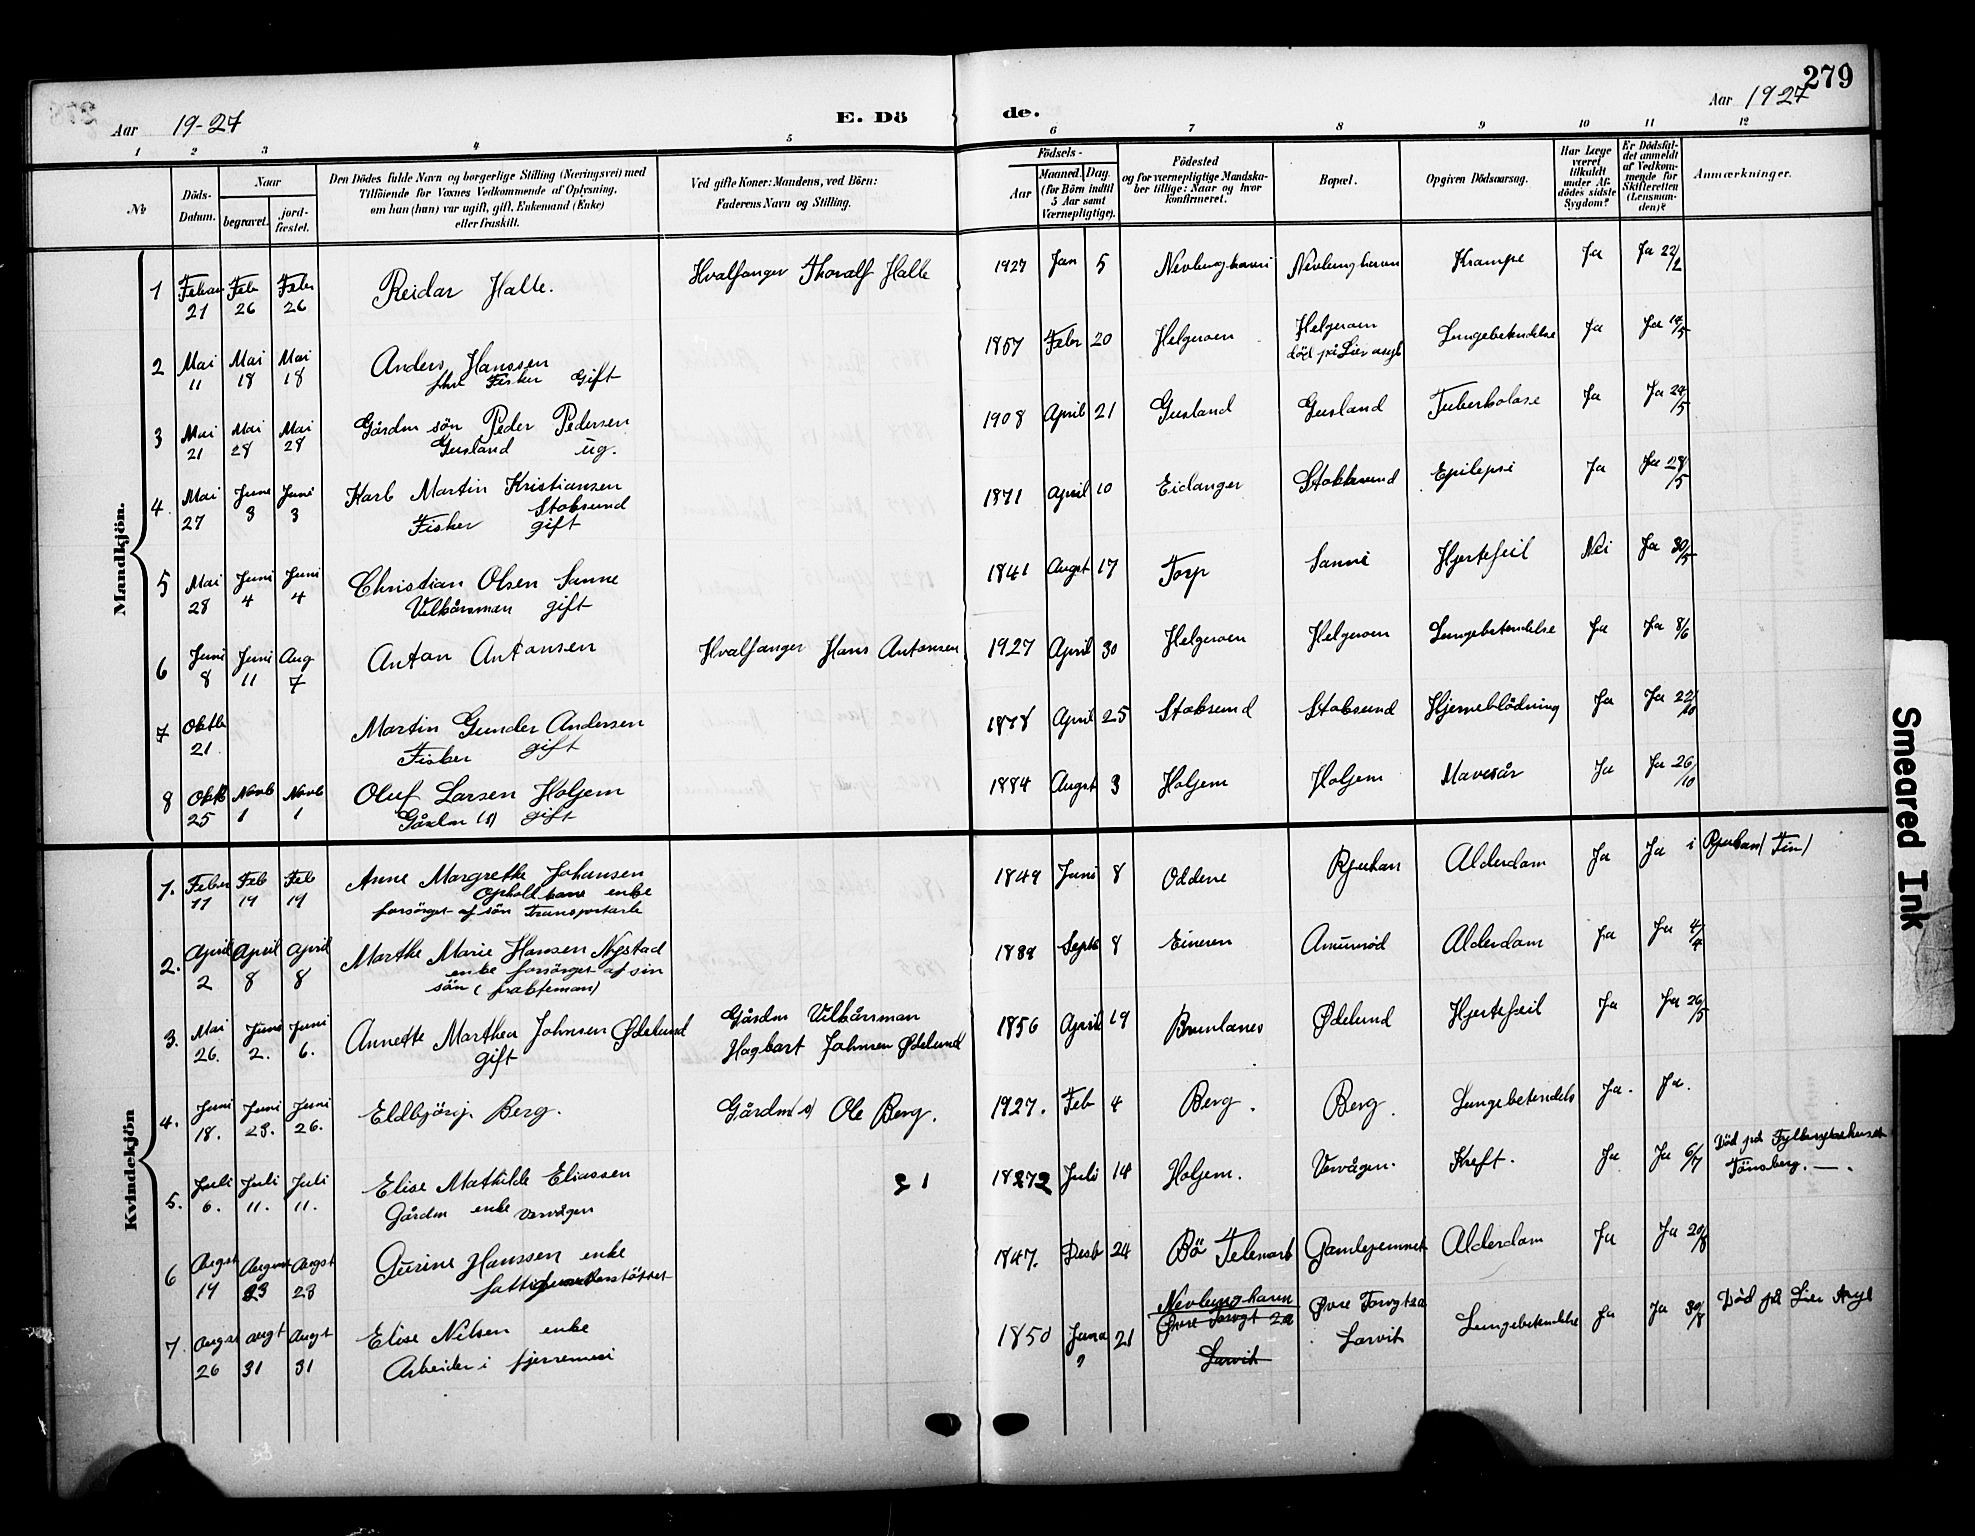 279
Aar 19-27 E. Döde. Aar 1927
1 2 3 4 5 6 7 8 9 10 11 12
No
Döds-Datum.
Naar
begravet.
jord-fæstet.
Den Dödes fulde Navn og borgerlige Stilling (Næringsvei) med
Tilföiende for Voxnes Vedkommende af Oplysning,
om han (hun) var ugift, gift, Enkemand (Enke)
eller fraskilt.
Ved gifte Koner: Mandens, ved Börn:
Faderens Navn og Stilling.
Födsels-
Aar
Maaned. Dag.
(for Börn indtil
5 Aar samt
Værnepligtige).
Födested
og for værnepligtige Mandska-
ber tillige: Naar og hvor
konfirmeret.
Bopæl.
Opgiven Dödsaarsag.
Har Læge
været
tilkaldt
under Af-
dödes sidste
Sygdom?
Er Dödsfal-
det anmeldt
af Vedkom-
mende for
Skifteretten
(Lensman-
den)?
Anmærkninger.
Mandkjön.
1 Febr 21 Feb 26 Febr 26 Reidar Halle. Hvalfanger Thoralf Halle 1927 Jan 5 Nevlunghavn Nevlunghavn Krampe Ja Ja 22/2
2 Mai 11 Mai 18 Mai 18 Anders Hanssen
Fisker Gift 1867 Febr 20 Helgeroen Helgeroen
död på Lier asyl Lungebetendelse Ja Ja 14/5
3 Mai 21 Mai 28 Mai 28 Gårdm sön Peder Pedersen
Gusland ug. 1908 April 21 Gusland Gusland Tuberkolose Ja Ja 24/5
4. Mai 27 June 3 Juni 3 Karl Martin Kristiansen
Stoksund
Fisker gift 1871 April 10 Eidanger Stokksund Epilepsi Ja Ja 28/5
5 Mai 28 Juni 4 Juni 4 Christian Olsen Sanne
Vilkårsman gift 1841 Augst 17 Torp Sanne Hjertefeil Nei Ja 30/5
6 Juni 8 Juni 11 Aug 7 Anton Antonsen Hvalfanger Hans Antonsen 1927 April 30 Helgeroen Helgeroen Lungebetendelse Ja Ja 8/6
7 Oktb 21 Martin Gunder Andersen
Fisker gift 1878 April 25 Stoksund Stoksund Hjerneblödning Ja Ja 22/10
8 Oktb 25 Novb 1 Novb 1 Oluf Larsen Holjem
Gårdm (s) gift 1884 Augst 3 Holjem Holjem Mavesår Ja Ja 26/10
Kvindekjön
1. Febr 11 Feb 19 Feb 19 Anne Margrethe Johansen
Ophold kone enke
forsörget af sön Transportarb 1849 Juni 8 Oddene Rjukan Alderdom Ja Ja i Rjukan (Tin)
2. April 2 April 8 April 8 Marthe Marie Hansen Nystad
enke forsörget af sin
sön (frakteman) Septb 8 Eineren Anumröd Alderdom Ja Ja 4/4
3. Mai 26. Juni 2. Juni 6. Annette Marthea Johnsen Ødelund
gift Gårdm Vilkårsman
Hagbart Johnsen Ødelund 1856 April 19 Brunlanes Ødelund Hjertefeil Ja Ja 26/5
4. Juni 18. Juni 23. Juni 26. Eldbjörg Berg. Gårdm(s) Ole Berg. 1927. Feb 4 Berg. Berg. Lungebetendels Ja. Ja.
5. Juli 6. Juli 11. Juli 11. Elise Mathilde Eliassen
Gårdm enke Vevågen 21 Juli 14 Holjem. Vevågen. Kreft. Ja Ja 6/7 Död på Fylkessykehuset
Tönsberg. —.
6 Augst 19 August 23 Augst 23 Gurine Hanssen enke
1847. Desb 24 Bö Telemark Gamlejemmet Alderdom Ja Ja 20/8
7. Augst 26 augt 31 Augt 31 Elise Nilsen enke
Arbeider i 1850 21 Nevlunghavn
Øvre Torvgt 2a
Larvik Øvre Torvgt 2a
Larvik Lungebetendelse Ja Ja 30/8 Död på Lier Asyl
Smeared Ink